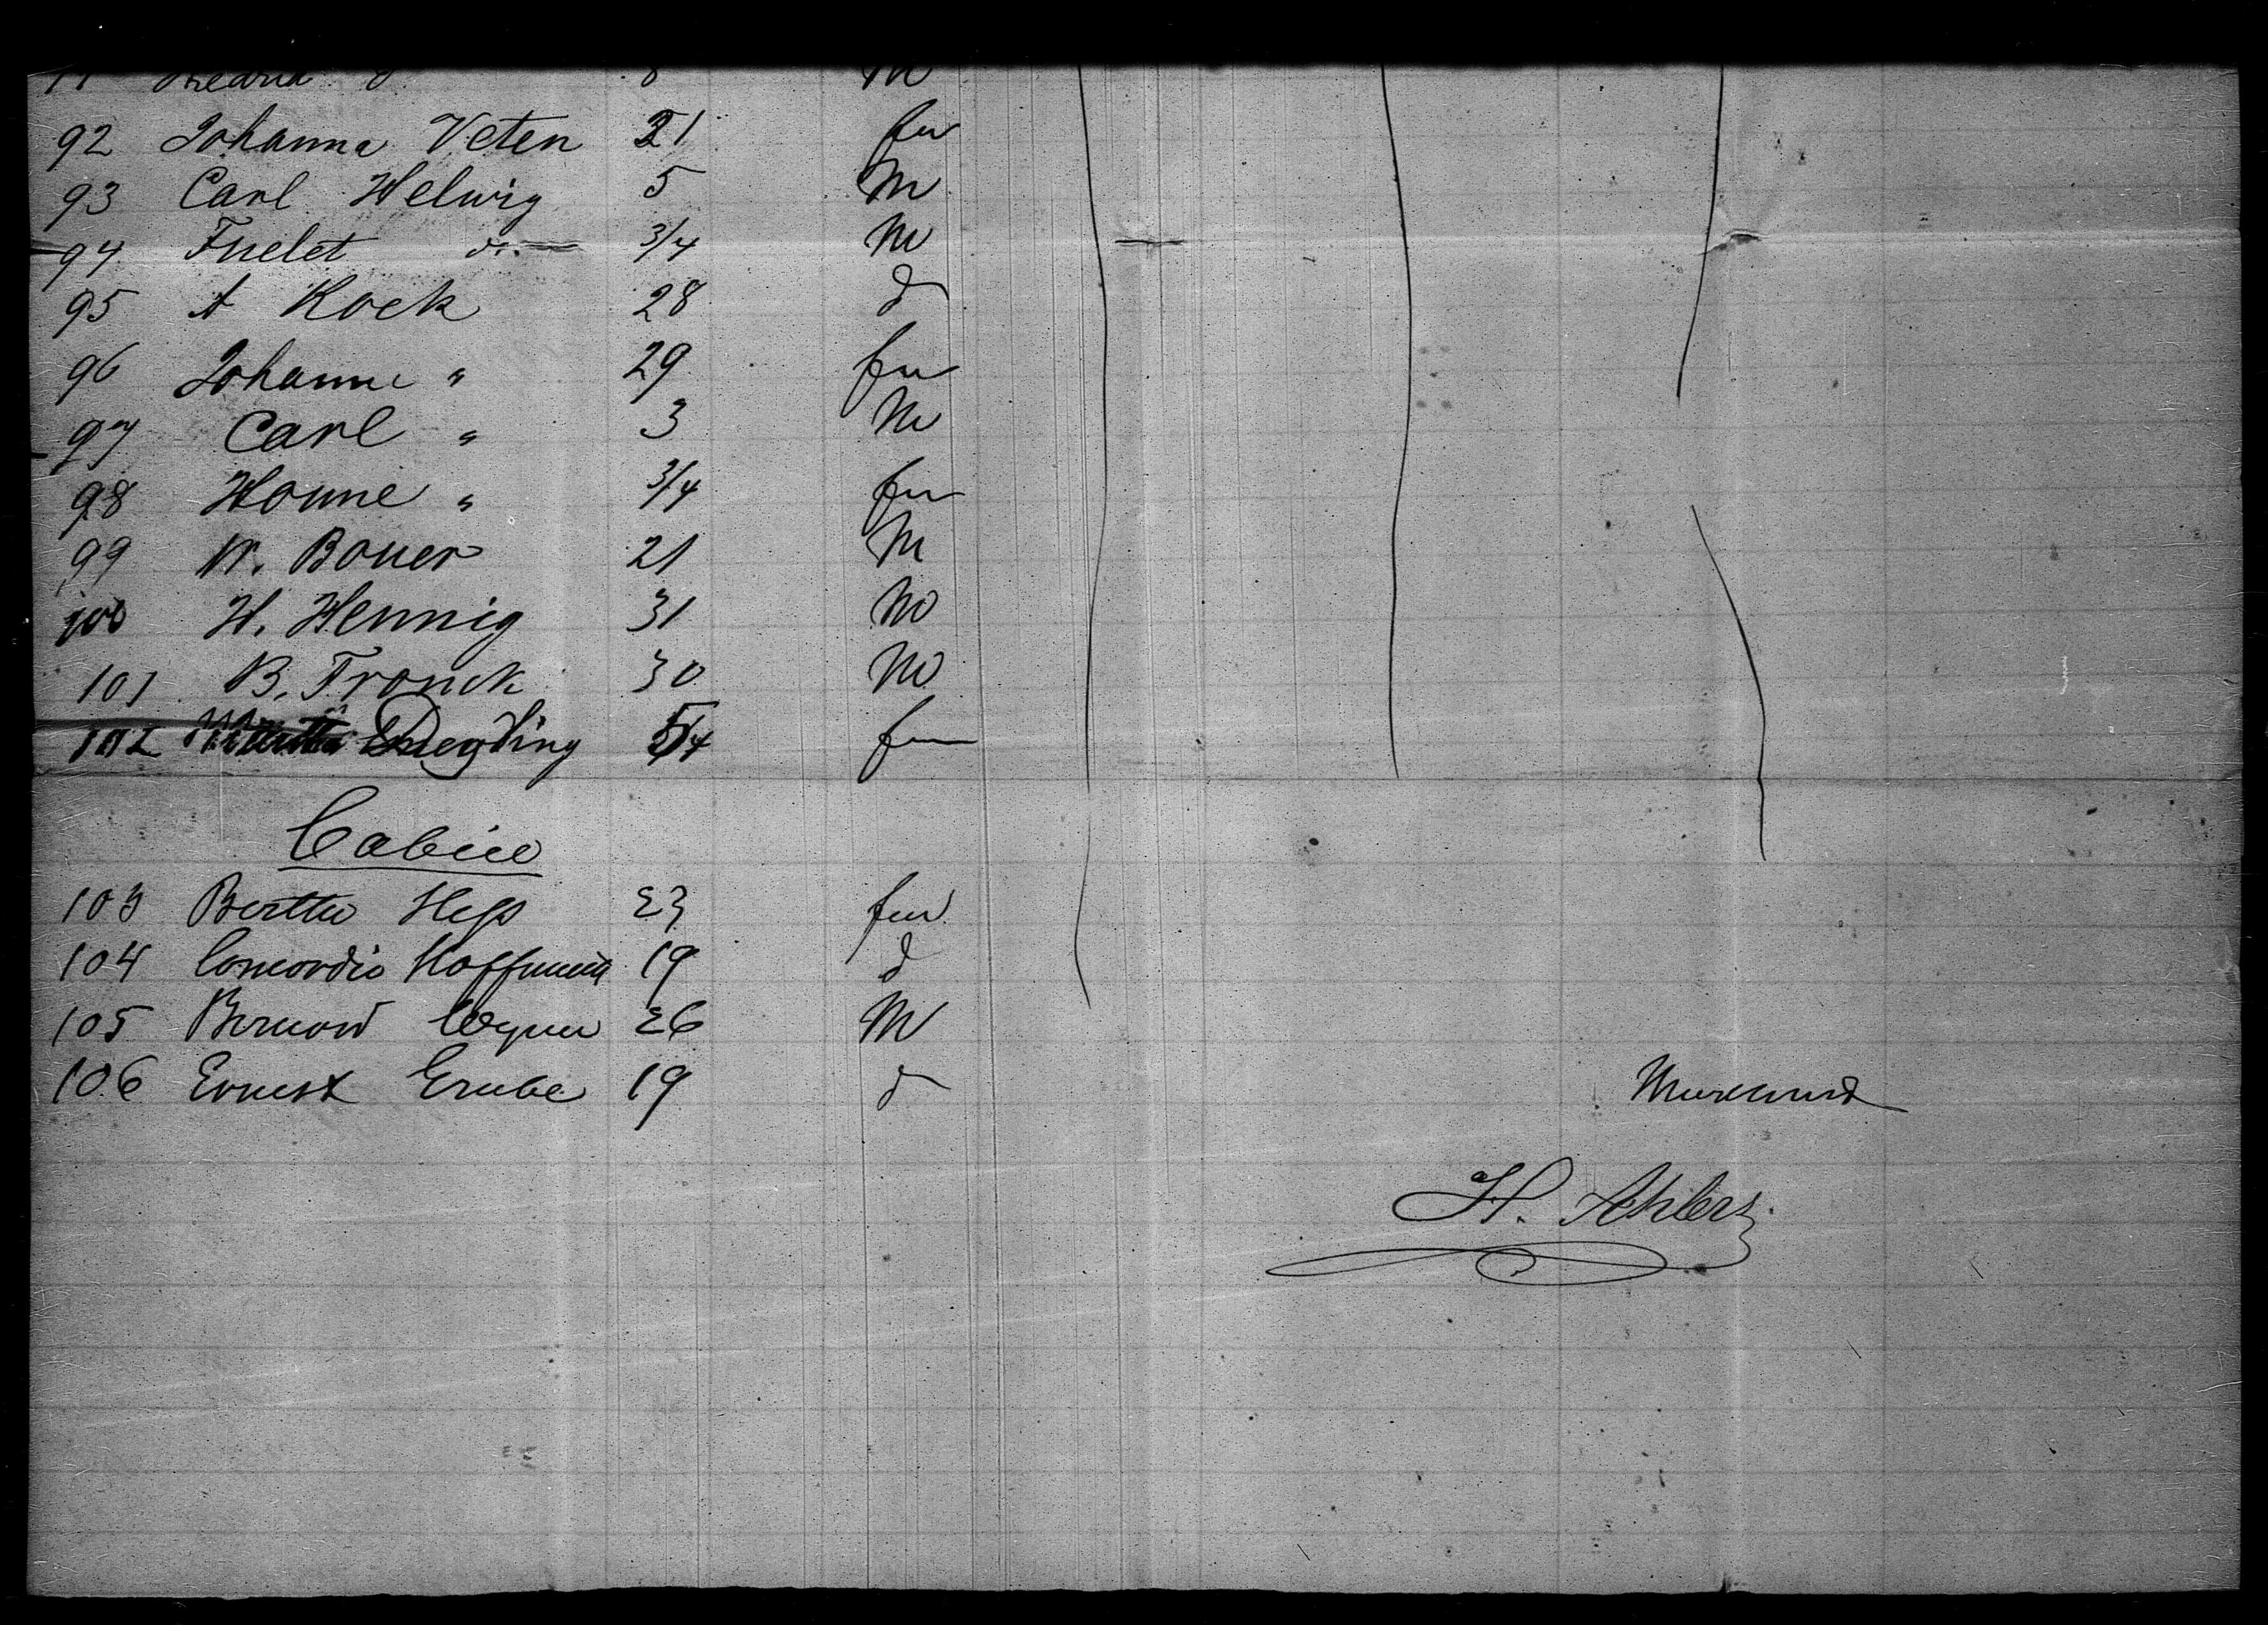 92 Johanna Veten 21 fm
93 Carl Helwig 5 M
94 Fuelet do. 3/4 M
95 A Kock 28 d
96 Johanne " 29 fm
97 Carl " 3 M
98 Hanne " 3/4 fm
99 W. Bauer 21 M
100 H. Hennig 31 M
101 B. Franck 30 M
102 fm
Cabine
103 Bertha Hess 23 fem
104 Concordia Hoffmann 19 d
105 Bernard 26 M
106 Ernest Grube 19 d
H. Ahlers